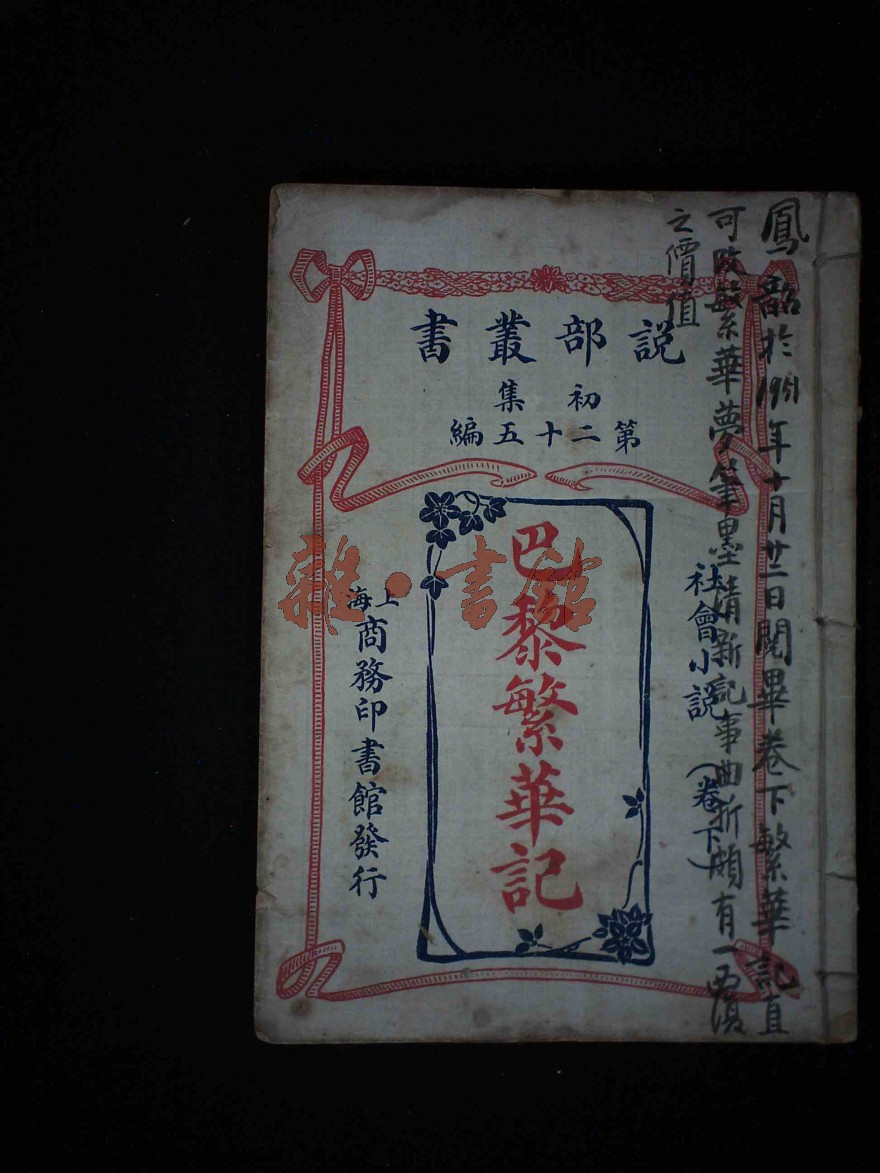 鳳於1951年十月廿二日閱畢卷下繁華記直
可繁華夢筆墨清新記事曲折頗有一
之價值
說部叢書
初集
第二十五編
社會小說（卷下）
巴黎繁華記
上海商務印書館發行
雜·書館